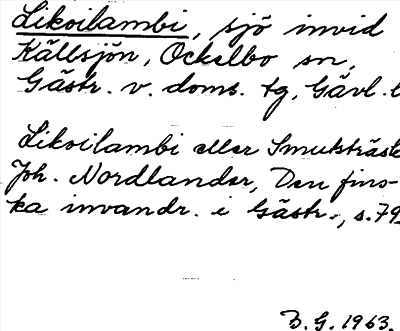 Likoilambi, sjö invid
Källsjön, Ockelbo sn,
Gästr. v. doms. tg, Gävl. l
Likoilambi eller Smukträsk
Joh. Nordlander, Den fins-
ka invandr. i Gästr., s. 79
B. G. 1963.